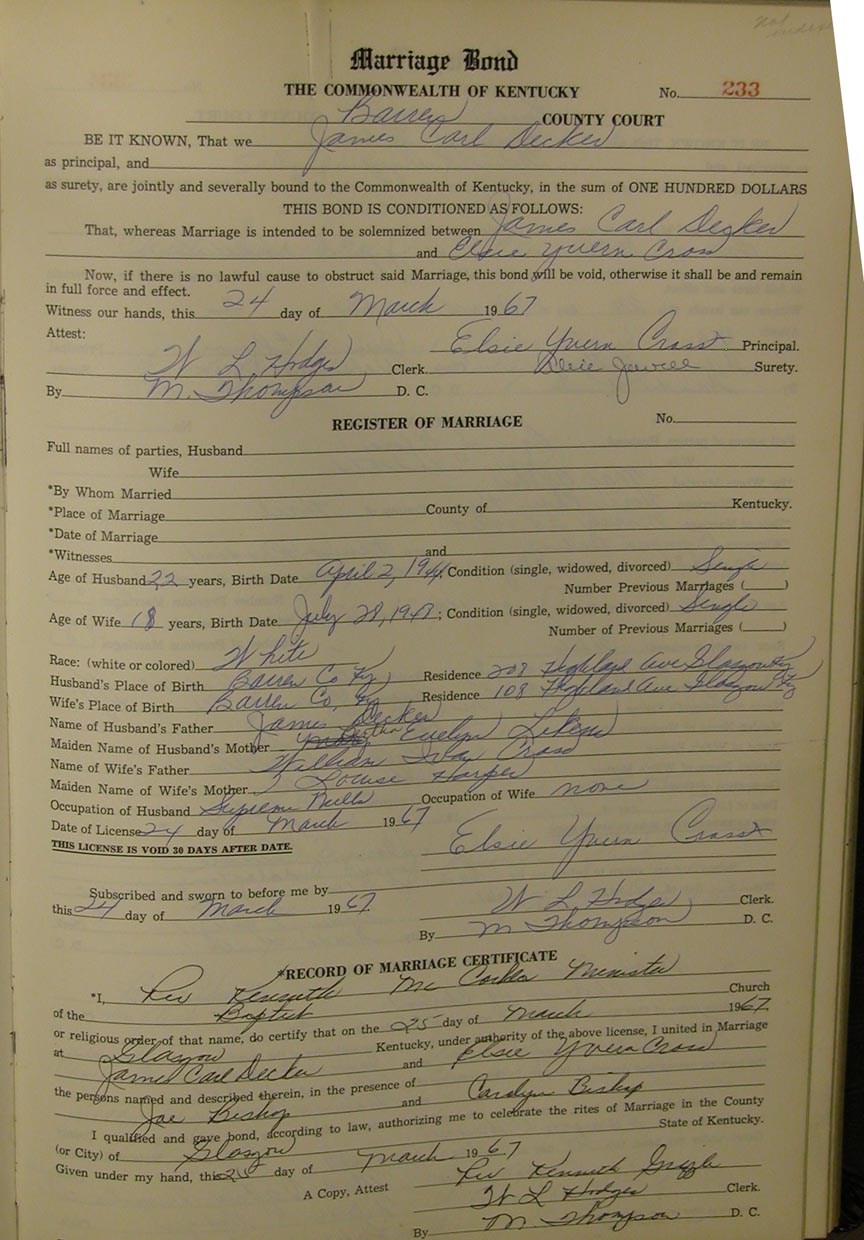 not
Marriage Bond
THE COMMONWEALTH OF KENTUCKY No. 233
Barren COUNTY COURT
BE IT KNOWN, That we James Carl Decker
as principal, and
as surety, are jointly and severally bound to the Commonwealth of Kentucky, in the sum of ONE HUNDRED DOLLARS
THIS BOND IS CONDITIONED AS FOLLOWS:
That, whereas Marriage is intended to be solemnized between James Carl Decker
and Elsie Yvern Cross
Now, if there is no lawful cause to obstruct said Marriage, this bond will be void, otherwise it shall be and remain
in full force and effect.
Witness our hands, this 24 day of March 1967
Attest: Elsie Yvern Cross Principal.
W L Hodges Clerk. Jewell Surety.
By M. Thompson D. C.
REGISTER OF MARRIAGE No.
Full names of parties, Husband
Wife
*By Whom Married
*Place of Marriage County of Kentucky.
*Date of Marriage
*Witnesses and
Age of Husband 22 years, Birth Date April 2, 1944; Condition (single, widowed, divorced) Single
Number Previous Marriages ( )
Age of Wife 18 years, Birth Date July 28, 1948; Condition (single, widowed, divorced) Single
Number of Previous Marriages ( )
Race: (white or colored) White
Husband's Place of Birth Barren Co Ky Residence 208 Highland Ave Glasgow Ky
Wife's Place of Birth Barren Co, Ky Residence 108 Highland Ave Glasgow Ky
Name of Husband's Father James Decker
Maiden Name of Husband's Mother Bertha Evelyn Likens
Name of Wife's Father William Ivan Cross
Maiden Name of Wife's Mother Louise Harper
Occupation of Husband Supreme Mills Occupation of Wife none
Date of License 24 day of March 1967
THIS LICENSE IS VOID 30 DAYS AFTER DATE. Elsie Yvern Cross
Subscribed and sworn to before me by
this 24 day of March 1967. W L Hodges Clerk.
By M Thompson D. C.
*RECORD OF MARRIAGE CERTIFICATE
*I, Rev Kenneth Minister
of the Baptist Church
or religious order of that name, do certify that on the 25 day of March 1967
at Glasgow Kentucky, under authority of the above license, I united in Marriage
James Carl Decker and Elsie Yvern Cross
the persons named and described therein, in the presence of
Joe Bishop and Carolyn Bishop
I qualified and gave bond, according to law, authorizing me to celebrate the rites of Marriage in the County
(or City) of Glasgow State of Kentucky.
Given under my hand, this 25 day of March 1967
Rev Kenneth
A Copy, Attest W L Hodges Clerk.
By M. Thompson D. C.